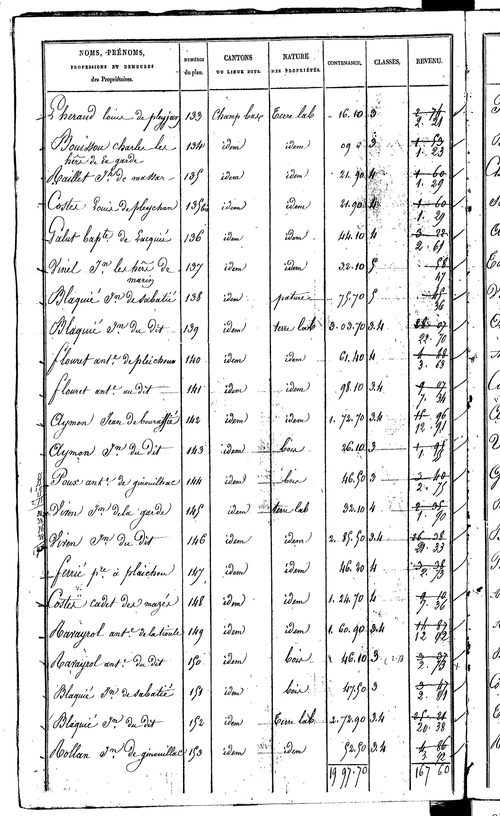 NOMS, PRÉNOMS, PROFESSIONS ET DEMEURES des Propriétaires. NUMÉROS du plan. CANTONS OU LIEUX DITS. NATURE DES PROPRIÉTÉS. CONTENANCE. CLASSES. REVENU.
Lheraud louis de pleyjay 133 Champ bas Terre lab 16.10 3 2 21
Bouisson charles les hére de la garde 134 idem idem 3 1 53 1. 23
Maillet Jn de massar 135 idem idem 21.90 4 1 60 1. 29
Costes Louis de pleychan 135bis idem idem 21.90 4 1 60 1. 29
Galut bapte de 136 idem idem 44.10 4 3 22 2. 61
Vinel Jn les hére de marin 137 idem idem 32.10 5 58 47
Blaquié Jn de sabatié 138 idem pature 75.70 5 45 36
Blaquié Jn du dit 139 idem terre lab 3.03.70 3.4 28 07 22. 70
flouret antne de pleicheu 140 idem idem 61.40 4 4 48 3. 63
flouret antne au dit 141 idem idem 98.10 3.4 9 07 7. 34
Aymon Jean de 142 idem idem 1.72.70 3.4 15 96 12. 91
Aymon Jn du dit 143 idem bois 26.10 3 1
Poux antne de ginouilhac 144 idem bois 46.50 3 3 40 2. 75
Viven Jn de la garde 145 idem terre lab 32.10 4 2 35 1. 90
Viven Jn du dit 146 idem idem 2.85.50 3.4 26 38 21. 33
ferrié pre à pleichou 147 idem idem 46.20 4 3 38 2. 73
Costes cadet des mazes 148 idem idem 1.24.70 4 9 10 7. 36
Ravayrol antne de la 149 idem idem 1.60.90 3.4 14 87 12 02
Ravayrol antne du dit 150 idem bois 46.10 3 3 37 2. 73
Blaquié Jn de sabatié 151 idem bois 47.50 3 3 47 2. 81
Blaquié Jn du dit 152 idem Terre lab 2.72.90 3.4 25. 21 20. 38
Rollan Jn de ginouillac 153 idem idem 52.50 3.4 4 86 3. 92
19 97.70 167 60